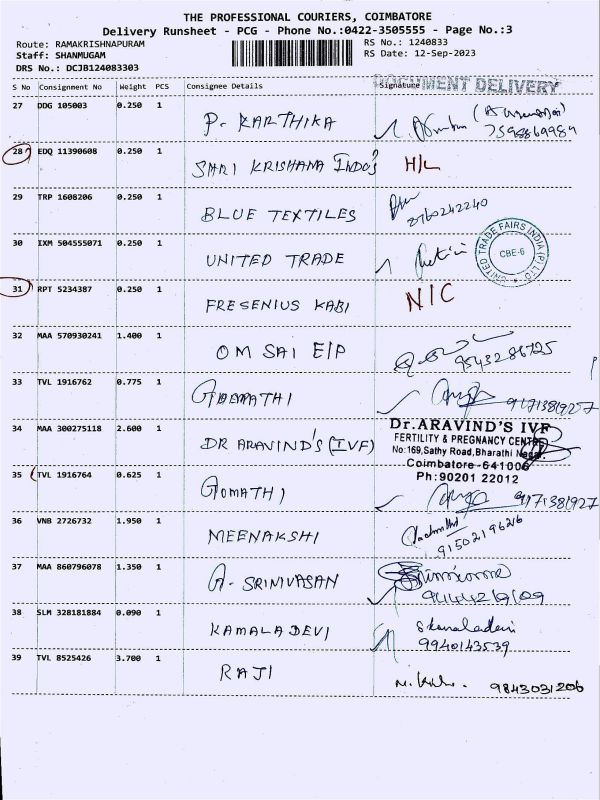 THE PROFESSIONAL COURIERS, COIMBATORE
Delivery Runsheet - PCG - Phone No.:0422-3505555 - Page No.:3
Route: RAMAKRISHNAPURAM
RS No.: 1240833
Staff: SHANMUGAM
RS Date: 12-Sep-2023
DRS No.: DCJB124083303
DOCUMENT DELIVERY
S No Consignment No Weight PCS Consignee Details Signature
27 DDG 105003 0.250 1 P. KARTHIKA 7598869989
28 EDQ 11390608 0.250 1 SHRI KRISHANA INDO's H/L
29 TRP 1608206 0.250 1 BLUE TEXTILES 8760242240
30 IXM 504555071 0.250 1 UNITED TRADE
UNITED TRADE FAIRS INDIA (P) LTD
CBE-6
31 RPT 5234387 0.250 1 FRESENIUS KABI N/C
32 MAA 570930241 1.400 1 OM SAI E/P 9543286725
33 TVL 1916762 0.775 1 9171381927
34 MAA 300275118 2.600 1 DR ARAVIND'S (IVF)
Dr.ARAVIND'S IVF
FERTILITY & PREGNANCY CENTRE
No:169,Sathy Road,Bharathi Nagar,
Coimbatore-641006
Ph:90201 22012
35 TVL 1916764 0.625 1 GOMATHI 9171381927
36 VNB 2726732 1.950 1 MEENAKSHI 9150219626
37 MAA 860796078 1.350 1 A. SRINIVASAN
38 SLM 328181884 0.090 1 KAMALA DEVI 9940143539
39 TVL 8525426 3.700 1 RAJI 9843031206